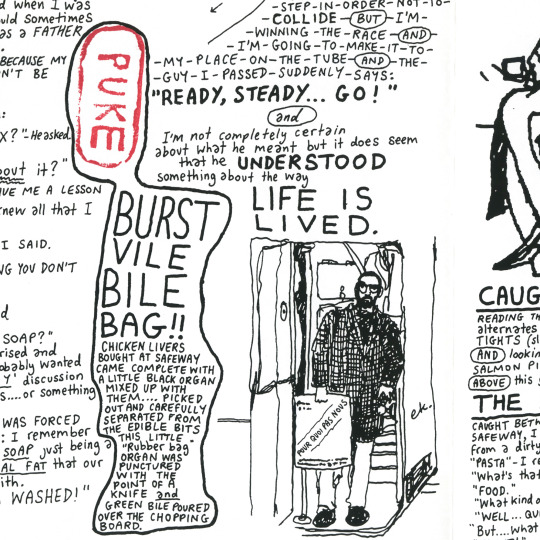 d when I was
ould sometimes
as a FATHER
BECAUSE MY
ON'T BE
X?"-He asked
out it?"
IVE ME A LESSON
knew all that I
I SAID.
NG YOU DON'T
SOAP?"
rised and
obably wanted
Y' discussion
s....or something
WAS FORCED
: I remember
SOAP just being a
AL FAT that our
ith.
WASHED!"
PUKE
BURST
VILE
BILE
BAG!!
CHICKEN LIVERS
BOUGHT AT SAFEWAY
CAME COMPLETE WITH
A LITTLE BLACK ORGAN
MIXED UP WITH
THEM.... PICKED
OUT AND CAREFULLY
SEPARATED FROM
THE EDIBLE BITS
THIS LITTLE -
"Rubber bag
ORGAN WAS
PUNCTURED
WITH THE
POINT OF A
KNIFE and
GREEN BILE POURED
OVER THE CHOPPING
BOARD.
-STEP-IN-ORDER-NOT-TO-
COLLIDE-BUT-I'M-
-WINNING-THE-RACE-AND-
-I'M-GOING-TO-MAKE-IT-TO-
-MY-PLACE-ON-THE-TUBE-AND-THE-
-GUY-I-PASSED-SUDDENLY-SAYS:
"READY, STEADY... GO!"
and
I'm not completely certain
about what he meant but it does seem
that he UNDERSTOOD
something about the way
LIFE IS
LIVED.
POUR QUOI PAS NOUS
ek.
CAUG
READING TH
alternates
TIGHTS (sl
AND lookin
SALMON PI
ABOVE this s
THE
CAUGHT BETW
SAFEWAY, I
from a dirty
"PASTA"-I re
"What's that
"FOOD."
"What kind o
"WELL... QU
"But....what